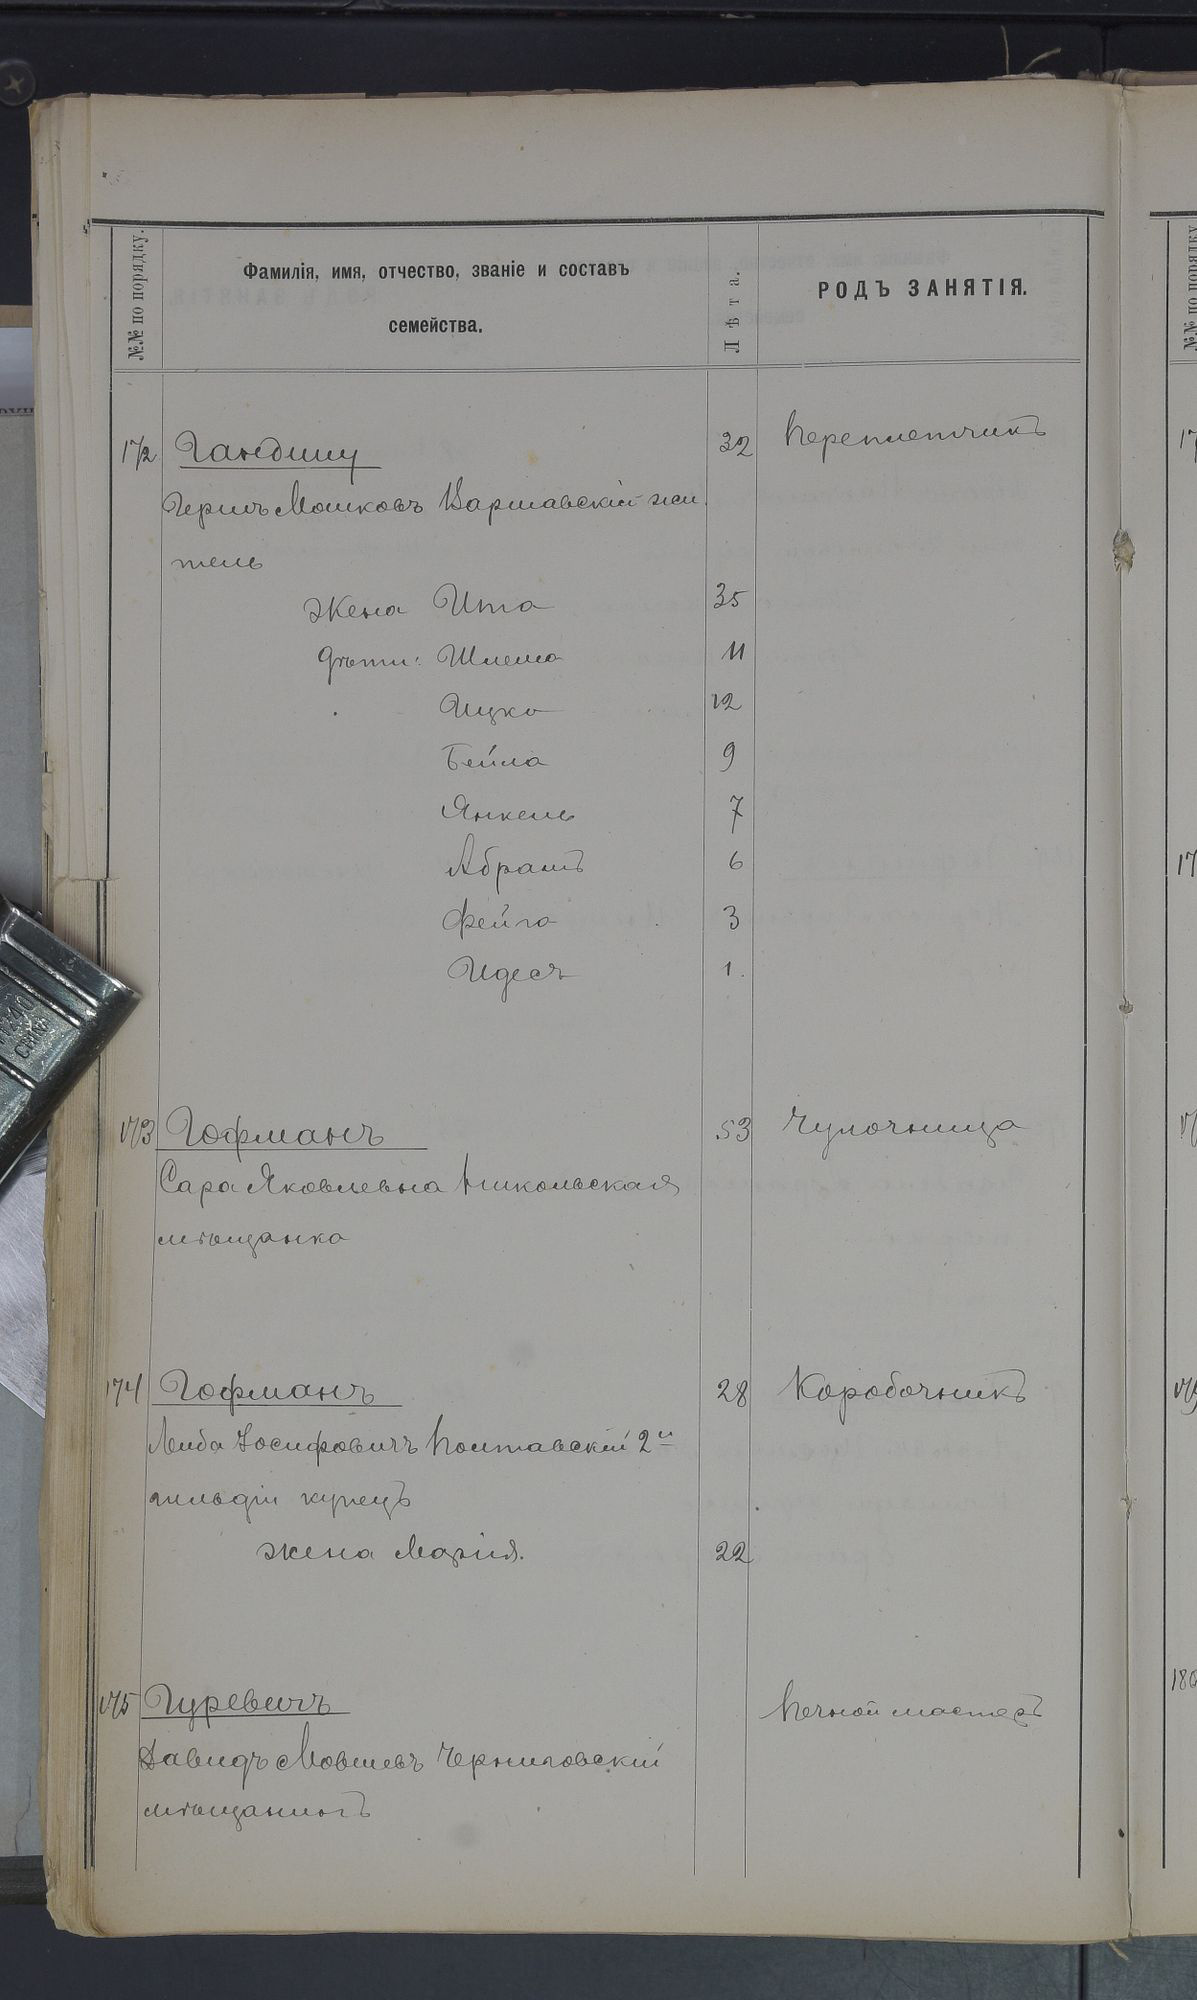 №№ по порядку.
Фамилія, имя, отчество, званіе и составъ
семейства.
Лѣта.
РОДЪ ЗАНЯТІЯ.
172 Гандшу 32 Переплетчикъ
Гершъ Мошковъ Варшавскій жи-
тель
Жена Ита 35
Дѣти: Шлема 11
Ицко 12
Бейла 9
Янкель 7
Абрамъ 6
Фейга 3
Идесъ 1.
173 Гофманъ 53 Чулочница
Сара Яковлевна Никольская
мѣщанка
174 Гофманъ 28 Коробочникъ
Лейба Іосифовичъ Полтавскій 2й
гильдіи купецъ
жена Марія. 22
175 Гуревичъ Печной мастеръ
Давидъ Мовшевъ Черниговскій
мѣщанинъ
№№ по порядку